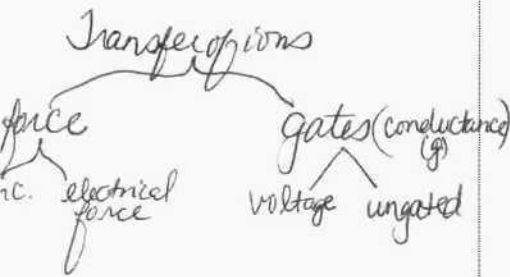 Transfer of ions
force gates (conductance)
(g)
nc. electrical voltage ungated
force